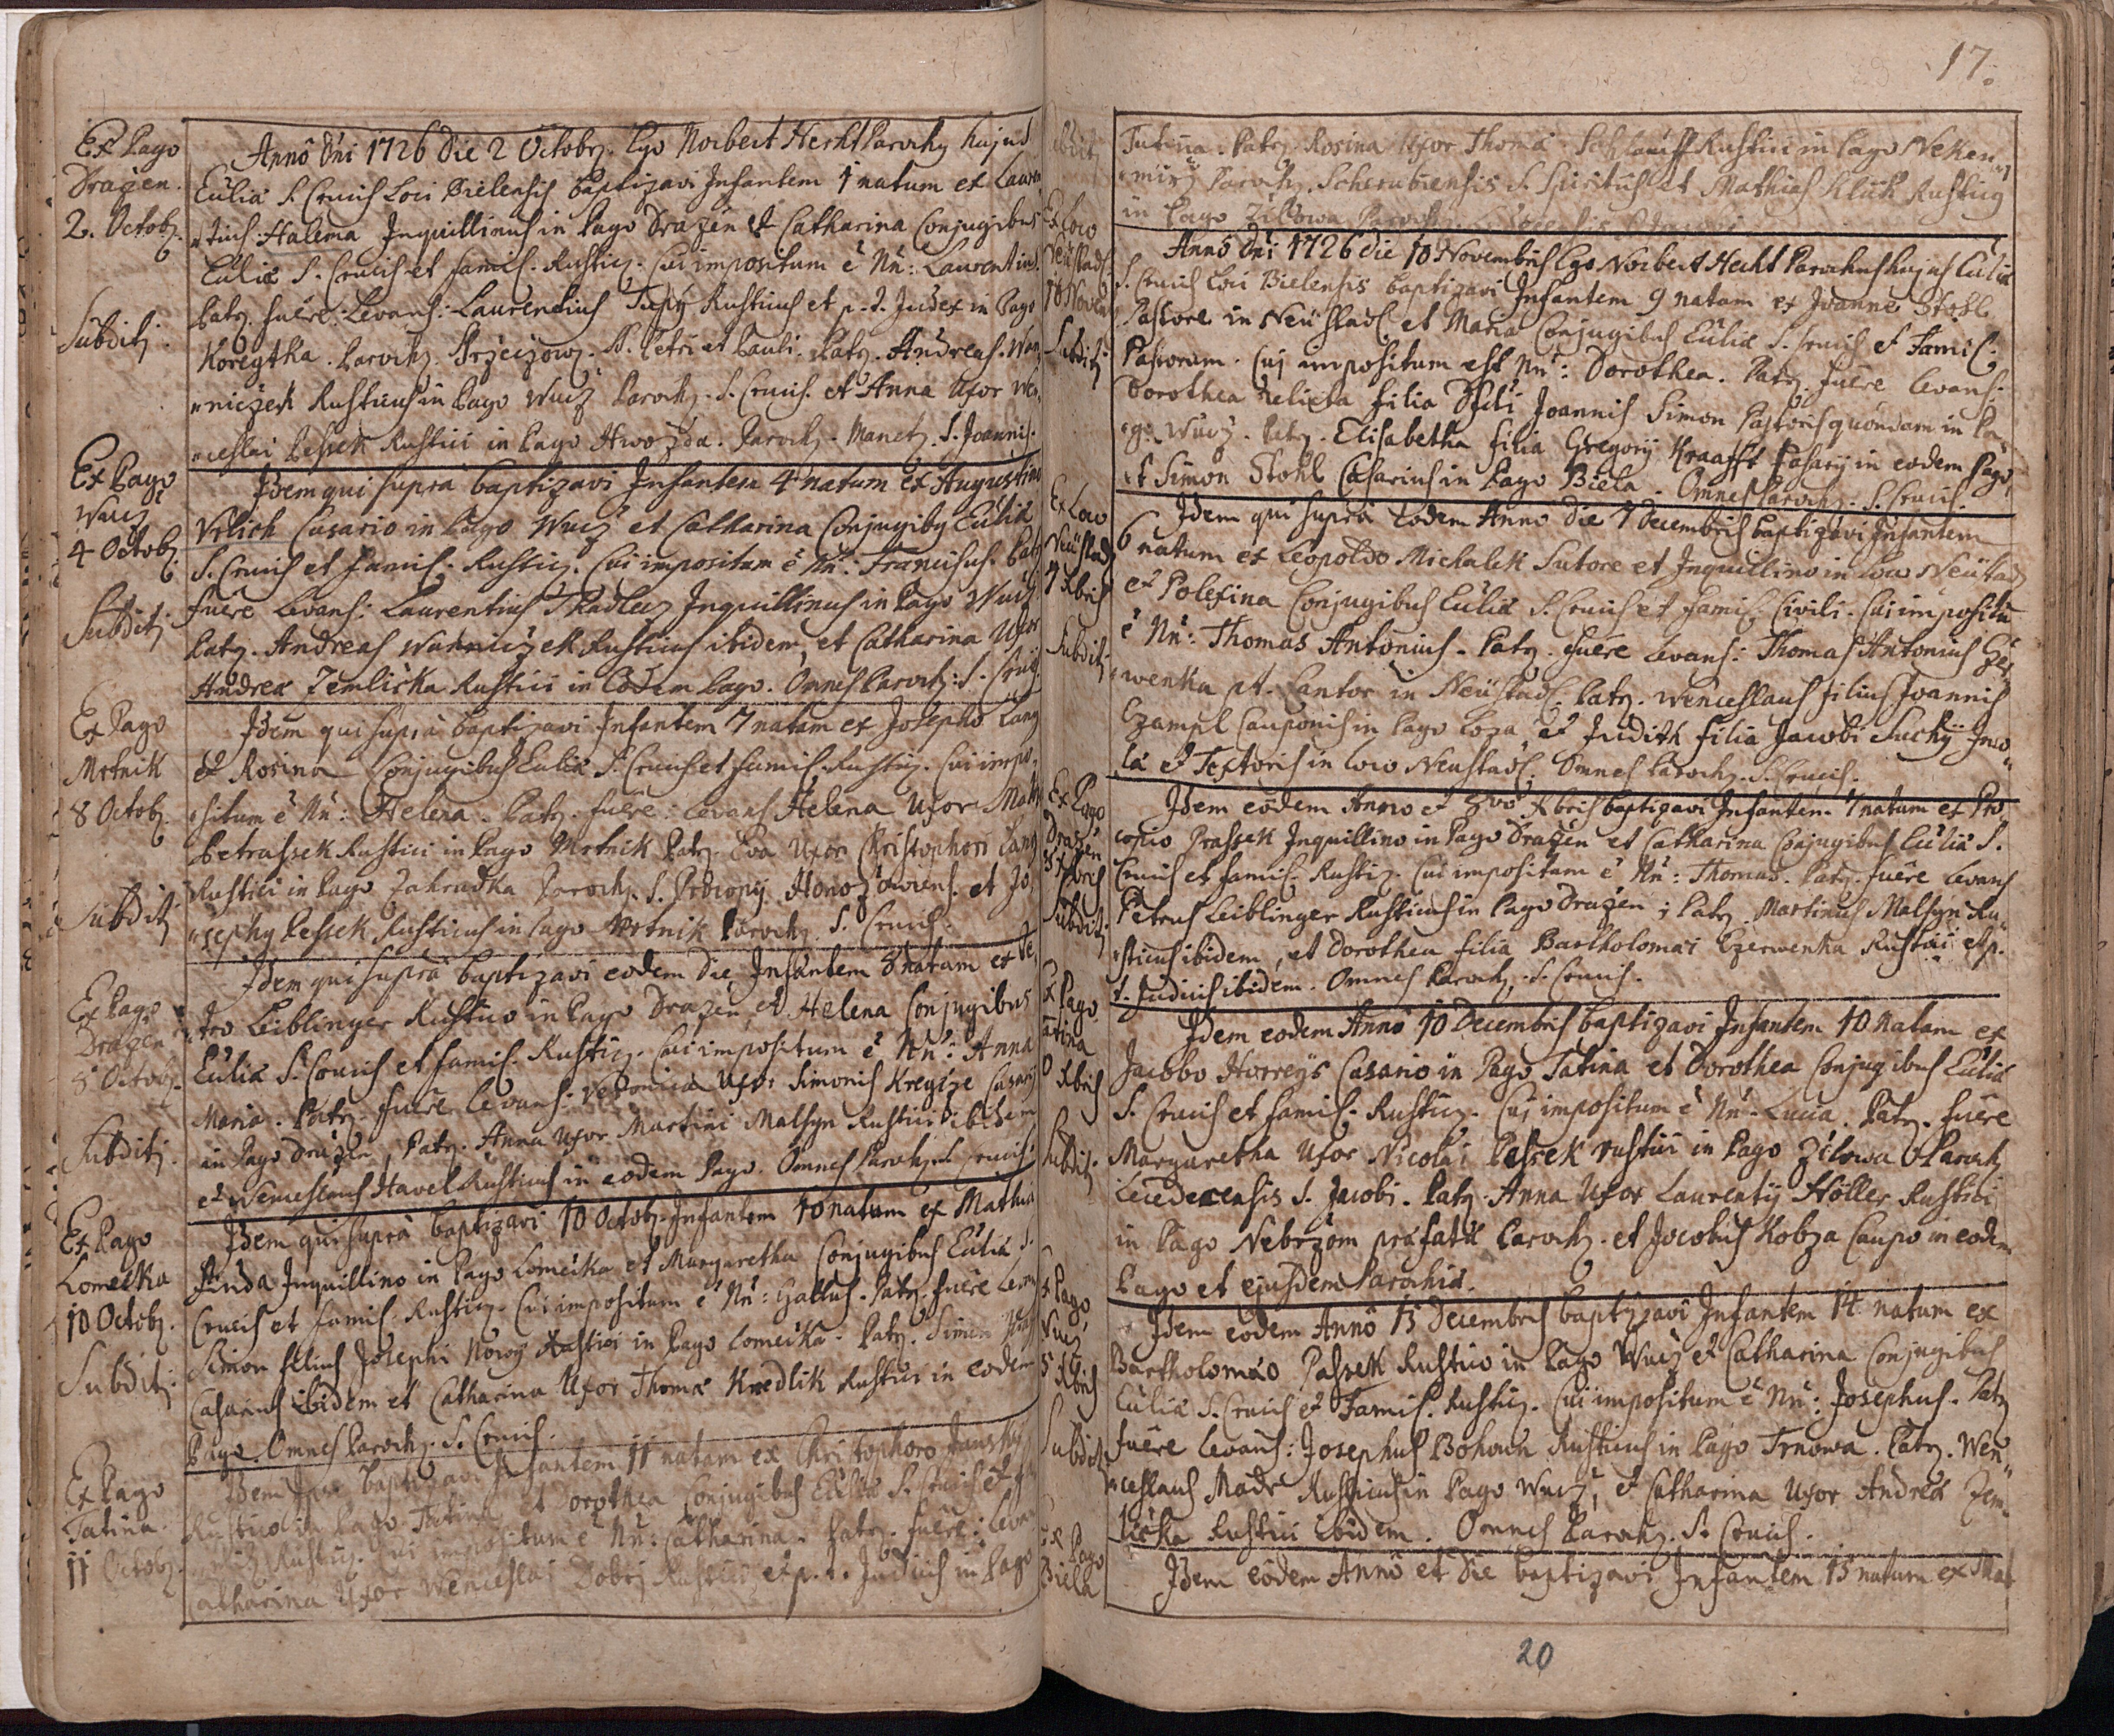 Ex Pago
Dražen.
2. Octobȝ.
Subditȝ.
Anno Dni 1726 Die 2 Octobȝ. Ego Norbert Hecht Parochȝ hujus
Eccliæ S. Crucis Loci Bielensis baptizavi Infantem 1 natum ex Lauren
"tius Halema Inquillinus in Pago Dražen et Catharina Conjugibus
Eccliæ S. Crucis et famil. Rusticȝ. Cui impositum ē Nn̄: Laurentius.
Patȝ. fuēre: Levans: Laurentius Tupȳ Rusticus et p. t. Judex in Pago
Koregtka. Parochȝ. SS. Petri et Pauli. Patȝ. Andreas Wan
"niczek Rusticus in Pago Wucž Parochȝ. S. Crucis. et Anna Uxor Wen,
"ceslai Pessek Rustici in Pago Hwozda. Parochȝ. Manetȝ. S. Joannis.
Ex Pago
Wucž
4 Octobȝ.
Subditȝ.
Idem qui supra baptizavi Infantem 4 natum ex Augustino
Vrlich Casario in Pago Wucž et Catharina Conjugibȝ Eccliæ
S. Crucis et famil. Rusticȝ. Cui impositum ē Nn̄: Franciscus. Patȝ
fuēre Levans: Laurentius Skadlecz Inquillinus in Pago Wucž.
Patȝ. Andreas Wanniczek Rusticus ibidem, et Catharina Uxor
Andreæ Zemlička Rustici in Eodem Pago. Omnes Parochȝ: S. Crucis.
Ex Pago
Mrtnik
8 Octobȝ.
Subditȝ
Idem qui supra baptizavi Infantem 7 natam ex Josepho Lang
et Rosina Conjugibus Eccliæ S. Crucis et famil. Rusticȝ. Cui impo,
"situm ē Nn̄: Helena. Patȝ. fuēre: Levans Helena Uxor Math
Petrassek Rustici in Pago Mrtnik Patȝ. Eva Uxor Christophori Lang
Rustici in Pago Zahradka Parochȝ. S. Procopij et Jo,
"sephȝ Pessek Rusticus in Pago Mrtnik Parochȝ. S. Crucis.
Ex Pago
Dražen
8 Octobȝ.
Subditȝ.
Idem qui supra baptizavi eodem die Infantem 8 natam ex Pe,
"tro Leiblinger Rustico in Pago Dražen, et Helena Conjugibus
Eccliæ S. Crucis et famil. Rusticȝ. Cui impositum ē Nn̄: Anna
Maria. Patȝ. fuēre Levans: Veronica Uxor Simonis Kregcže Casarij
in Pago Dražen, Patȝ. Anna Uxor Martini Malsyn Rustici ibidem
et Wenceslaus Havel Rusticus in eodem Pago. Omnes Parochȝ S. Crucis.
Ex Pago
Lomička
10 Octobȝ.
Subditȝ.
Idem qui supra baptizavi 10 Octobȝ. Infantem 10 natum ex Mathia
Jinda Inquillino in Pago Lomička et Margaretha Conjugibus Eccliæ S.
Crucis et famil. Rusticȝ. Cui impositum ē Nn̄: Gallus. Patȝ. fuēre Levans
Simon filius Josephi Nowȳ Rustici in Pago Lomička. Patȝ. Simon
Casarius ibidem et Catharina Uxor Thomæ Knedlik Rustici in eodem
Pago. Omnes Parochȝ. S. Crucis.
Ex Pago
Tatina.
11 Octobȝ.
Idem baptizavi Infantem 11 natam ex Christophoro Janskȳ
Rustico in Pago Tatina et Dorothea Conjugibus Eccliæ S. Crucis et
Rusticȝ. Cui impositum ē Nn̄: Catharina. Patȝ. fuēre: Levans
Catharina Uxor Wenceslai Dobrȳ Rustici et p. t. Judicis in Pago
17.
Subditȝ
Tatina. Patȝ. Rosina Uxor Thomæ Rustici in Pago Neken
"mirž Parochȝ. S. Spiritus et Mathias Kluk Rusticȝ
in Pago Žilowa
Ex Loco
Neüstadl
10 Novem
Subditȝ
Anno Dni 1726 die 10 Novembris Ego Norbert Hecht Parochus hujus Eccliæ
S. Crucis Loci Bielensis baptizavi Infantem 9 natam ex Joanne Stohl
Pastore in Neüstadl et Maria Conjugibus Eccliæ S. Crucis et Famil.
Pastorum. Cuj impositum est Nn̄: Dorothea. Patȝ. fuēre Levans:
Dorothea relicta filia Dfcti Joannis Simon Pastoris quondam in Pa,
"go Wucž. Patȝ. Elisabetha filia Gregorij Kraafft Casarij in eodem Pago,
et Simon Stohl Casarius in Pago Biela. Omnes Parochȝ. S. Crucis.
Ex Loco
Neüstadl
7 Xbris
Subditȝ
Idem qui supra Eodem Anno die 7 Decembris baptizavi Infantem
6 natum ex Leopoldo Michalek Sutore et Inquillino in Loco Neüstadl
et Polexina Conjugibus Eccliæ S. Crucis et famil. Civili. Cui impositū
ē Nn̄: Thomas Antonius. Patȝ. fuēre Levans: Thomas Antonius Czer
"wenka pt. Cantor in Neüstadl. Patȝ. Wenceslaus filius Joannis
Czampl Cauponis in Pago Loza, et Judith filia Jacobi Suchȳ Inco
læ et Textoris in Loco Neustadl. Omnes Parochȝ. S. Crucis.
Ex Pago
Dražen
8 Xbris
Subditȝ
Idem eodem Anno et 8vo Xbris baptizavi Infantem 7 natum ex Pro
copio Prassek Inquillino in Pago Dražen et Catharina Conjugibus Eccliæ S.
Crucis et famil. Rusticȝ. Cui impositum ē Nn̄: Thomas. Patȝ. fuēre Levans
Petrus Leiblinger Rusticus in Pago Dražen; Patȝ. Martinus Malsyn Ru
"sticus ibidem, et Dorothea filia Bartholomæi Czerwenka Rustici et p.
t. Judicis ibidem. Omnes Parochȝ. S. Crucis.
Ex Pago
Tatina
10 Xbris
Subditȝ.
Idem eodem Anno 10 Decembris baptizavi Infantem 10 natam ex
Jacobo Horreys Casario in Pago Tatina et Dorothea Conjugibus Eccliæ
S. Crucis et famil. Rusticȝ. Cuj impositum ē Nn̄ Lucia. Patȝ. fuēre
Margaretha Uxor Nicolai Pessek rustici in Pago Žilowa Parochȝ
Ledecensis S. Jacobi. Patȝ. Anna Uxor Laurentij Höller Rustici
in Pago Nebržom præfatæ Parochȝ. et Jacobus Kobza Caupo in eodem
Pago et ejusdem Parochiæ.
Ex Pago
Wucž
15 Xbris
Subditȝ
Idem eodem Anno 15 Decembris baptizavi Infantem 14 natum ex
Bartholomæo Passek Rustico in Pago Wucž et Catharina Conjugibus
Eccliæ S. Crucis et Famil. Rusticȝ. Cui impositum ē Nn̄: Josephus. Patȝ
fuēre Levans: Josephus Bohown Rusticus in Pago Trnowa. Patȝ. Wen"
"ceslaus Madr Rusticus in Pago Wucž, et Catharina Uxor Andreæ Zem"
lička Rustici ibidem. Omnes Parochȝ. S. Crucis.
Ex Pago
Biela
Idem eodem Anno et die baptizavi Infantem 15 natum ex Mat
20